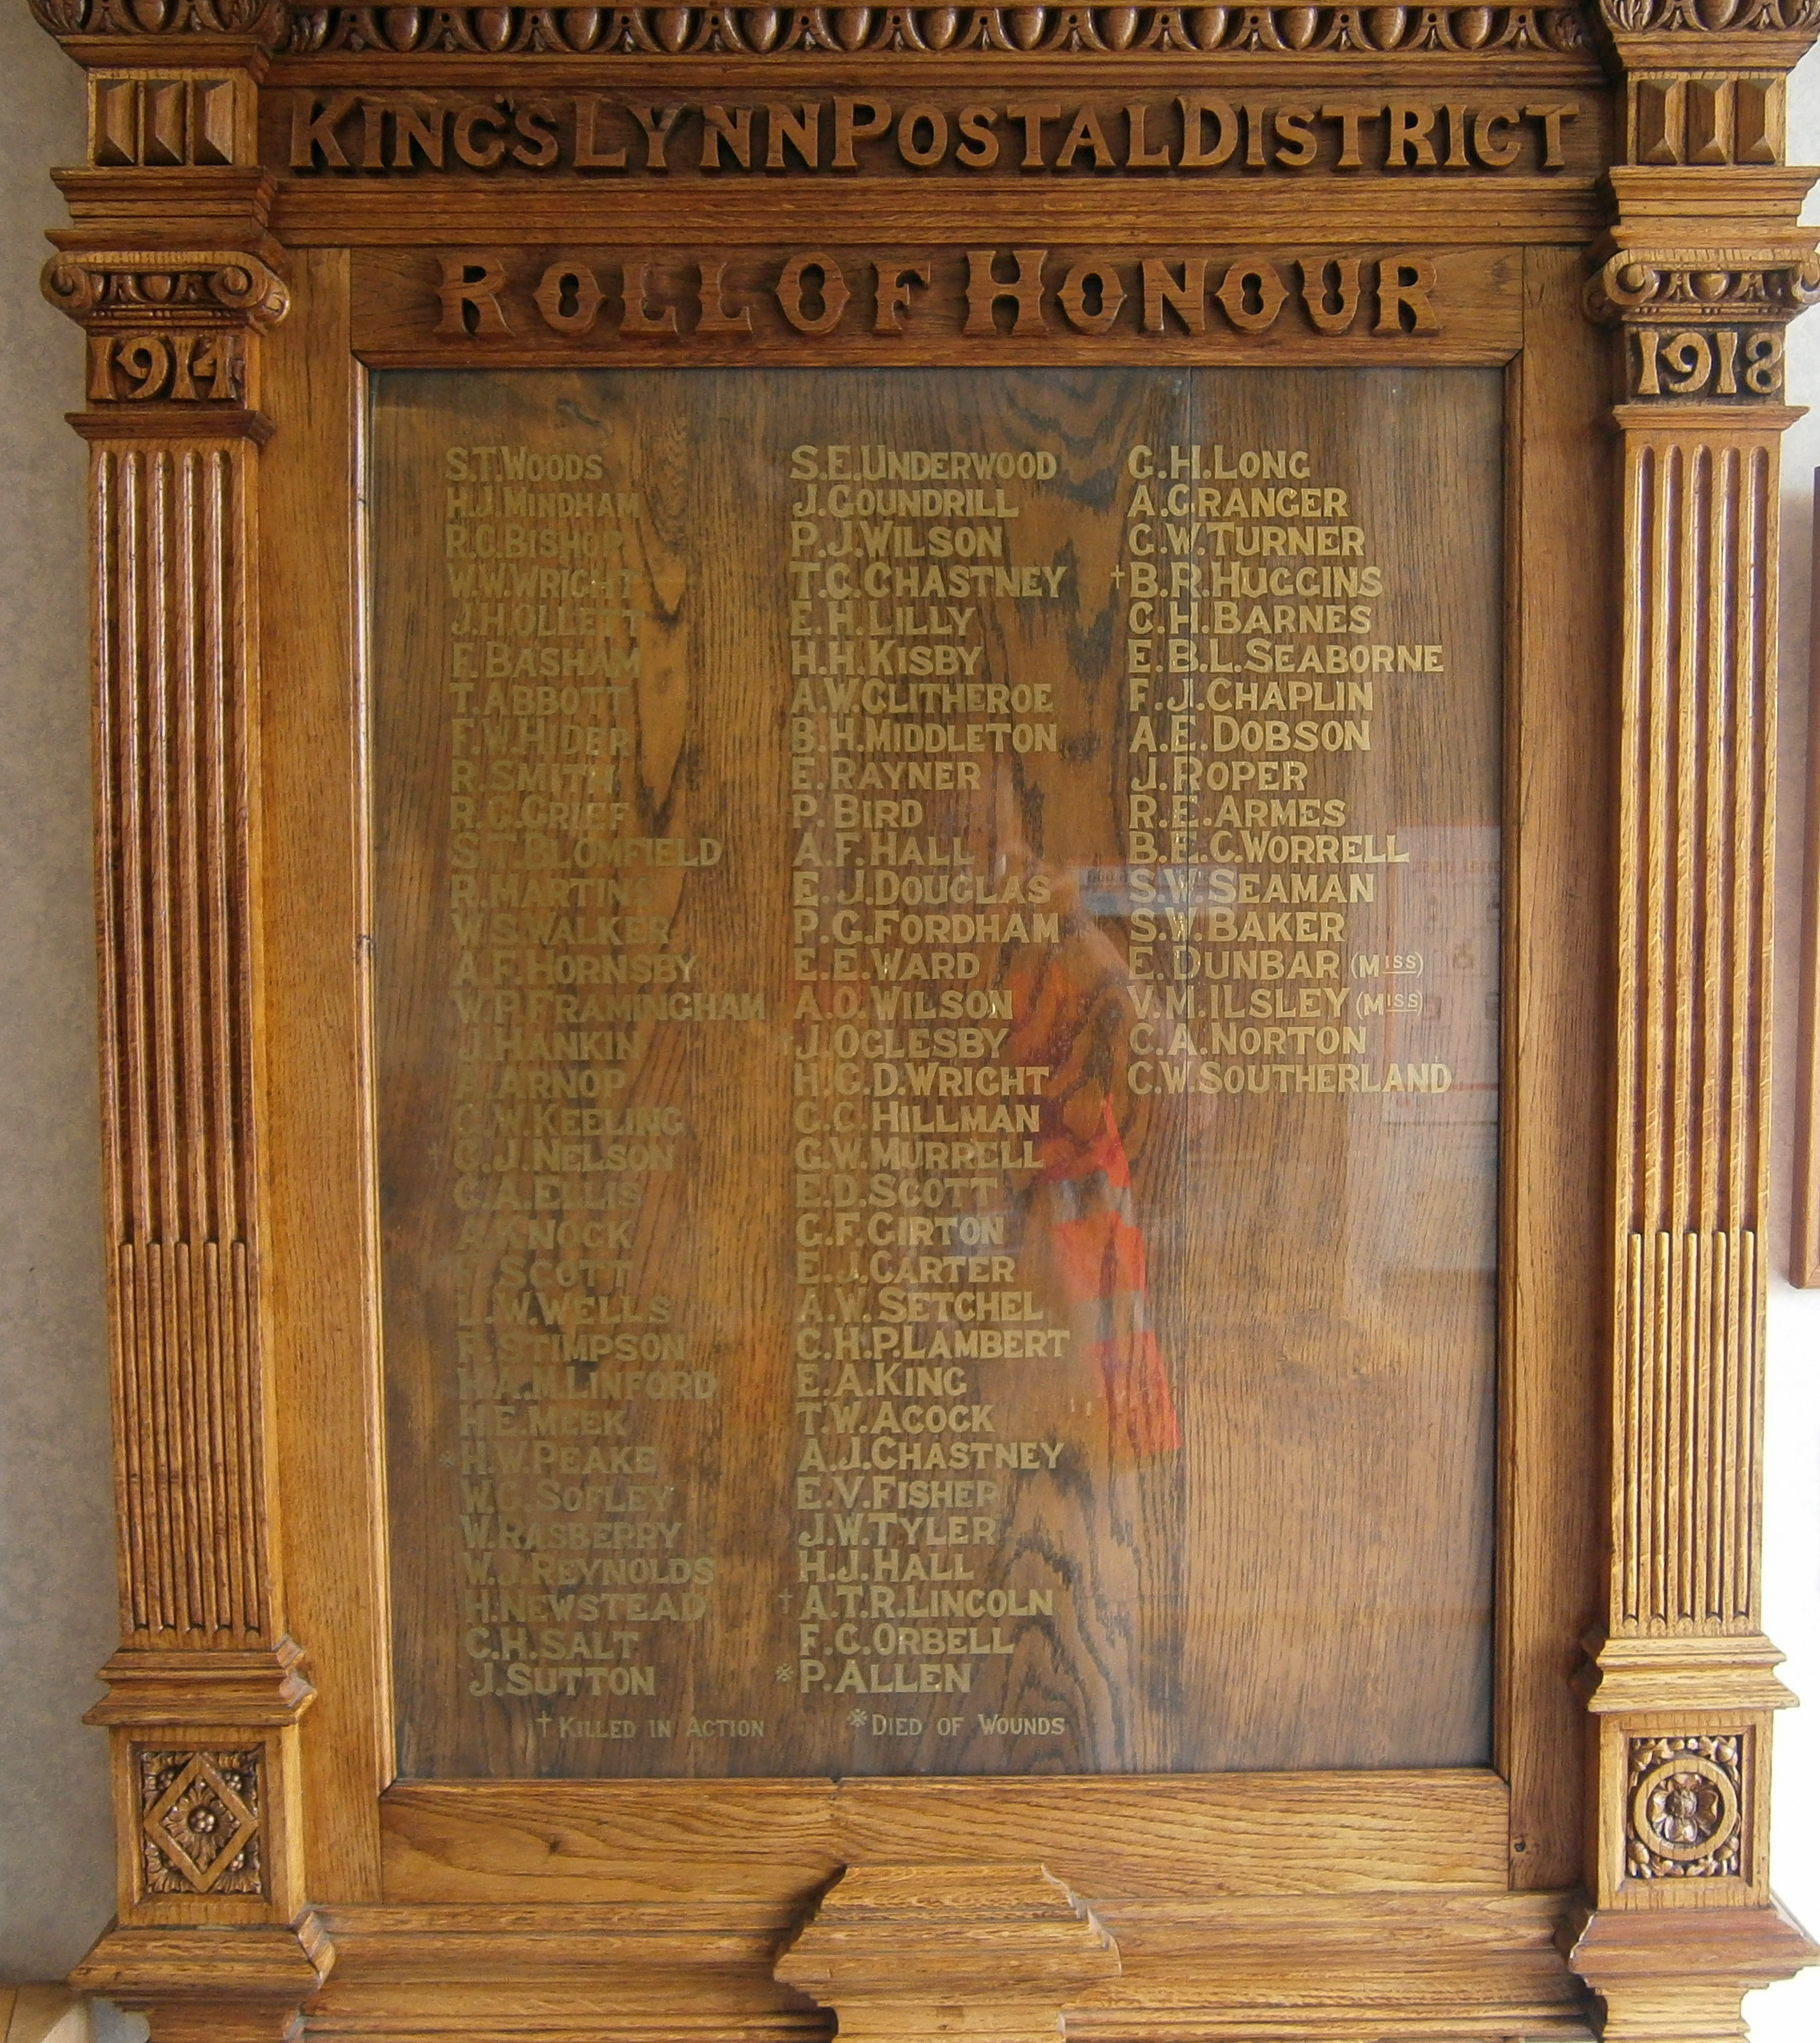 KING'S LYNN POSTAL DISTRICT
ROLL OF HONOUR
1914
1918
S.T. WOODS
H.J. MINDHAM
R.C. BISHOP
W.W. WRIGHT
J.H. OLLETT
F. BASHAM
T. ABBOTT
F.W. HIDER
R. SMITH
R.G. GRIEF
S.T. BLOMFIELD
R. MARTINS
W.S. WALKER
A.F. HORNSBY
W.P. FRAMINGHAM
J. HANKIN
A. ARNOP
C.W. KEELING
† C.J. NELSON
C.A. ELLIS
A. KNOCK
SCOTT
L.W. WELLS
F. STIMPSON
H.A.M. LINFORD
H.E. MEEK
※ H.W. PEAKE
W.G. SOFLEY
W. RASBERRY
W.J. REYNOLDS
H. NEWSTEAD
C.H. SALT
J. SUTTON
S.E. UNDERWOOD
J. GOUNDRILL
P.J. WILSON
T.C. CHASTNEY
E.H. LILLY
H.H. KISBY
A.W. CLITHEROE
B.H. MIDDLETON
E. RAYNER
P. BIRD
A.F. HALL
E.J. DOUGLAS
P.G. FORDHAM
E.E. WARD
A.O. WILSON
J. OGLESBY
H.G.D. WRIGHT
C.C. HILLMAN
G.W. MURRELL
E.D. SCOTT
G.F. GIRTON
E.J. CARTER
A.W. SETCHEL
C.H.P. LAMBERT
E.A. KING
T.W. ACOCK
A.J. CHASTNEY
E.V. FISHER
J.W. TYLER
H.J. HALL
† A.T.R. LINCOLN
F.C. ORBELL
※ P. ALLEN
G.H. LONG
A. GRANGER
G.W. TURNER
† B.R. HUGGINS
C.H. BARNES
E.B.L. SEABORNE
F.J. CHAPLIN
A.E. DOBSON
J. ROPER
R.E. ARMES
B.E.C. WORRELL
S.W. SEAMAN
S.W. BAKER
E. DUNBAR (MISS)
V.M. ILSLEY (MISS)
C.A. NORTON
C.W. SOUTHERLAND
† KILLED IN ACTION ※ DIED OF WOUNDS